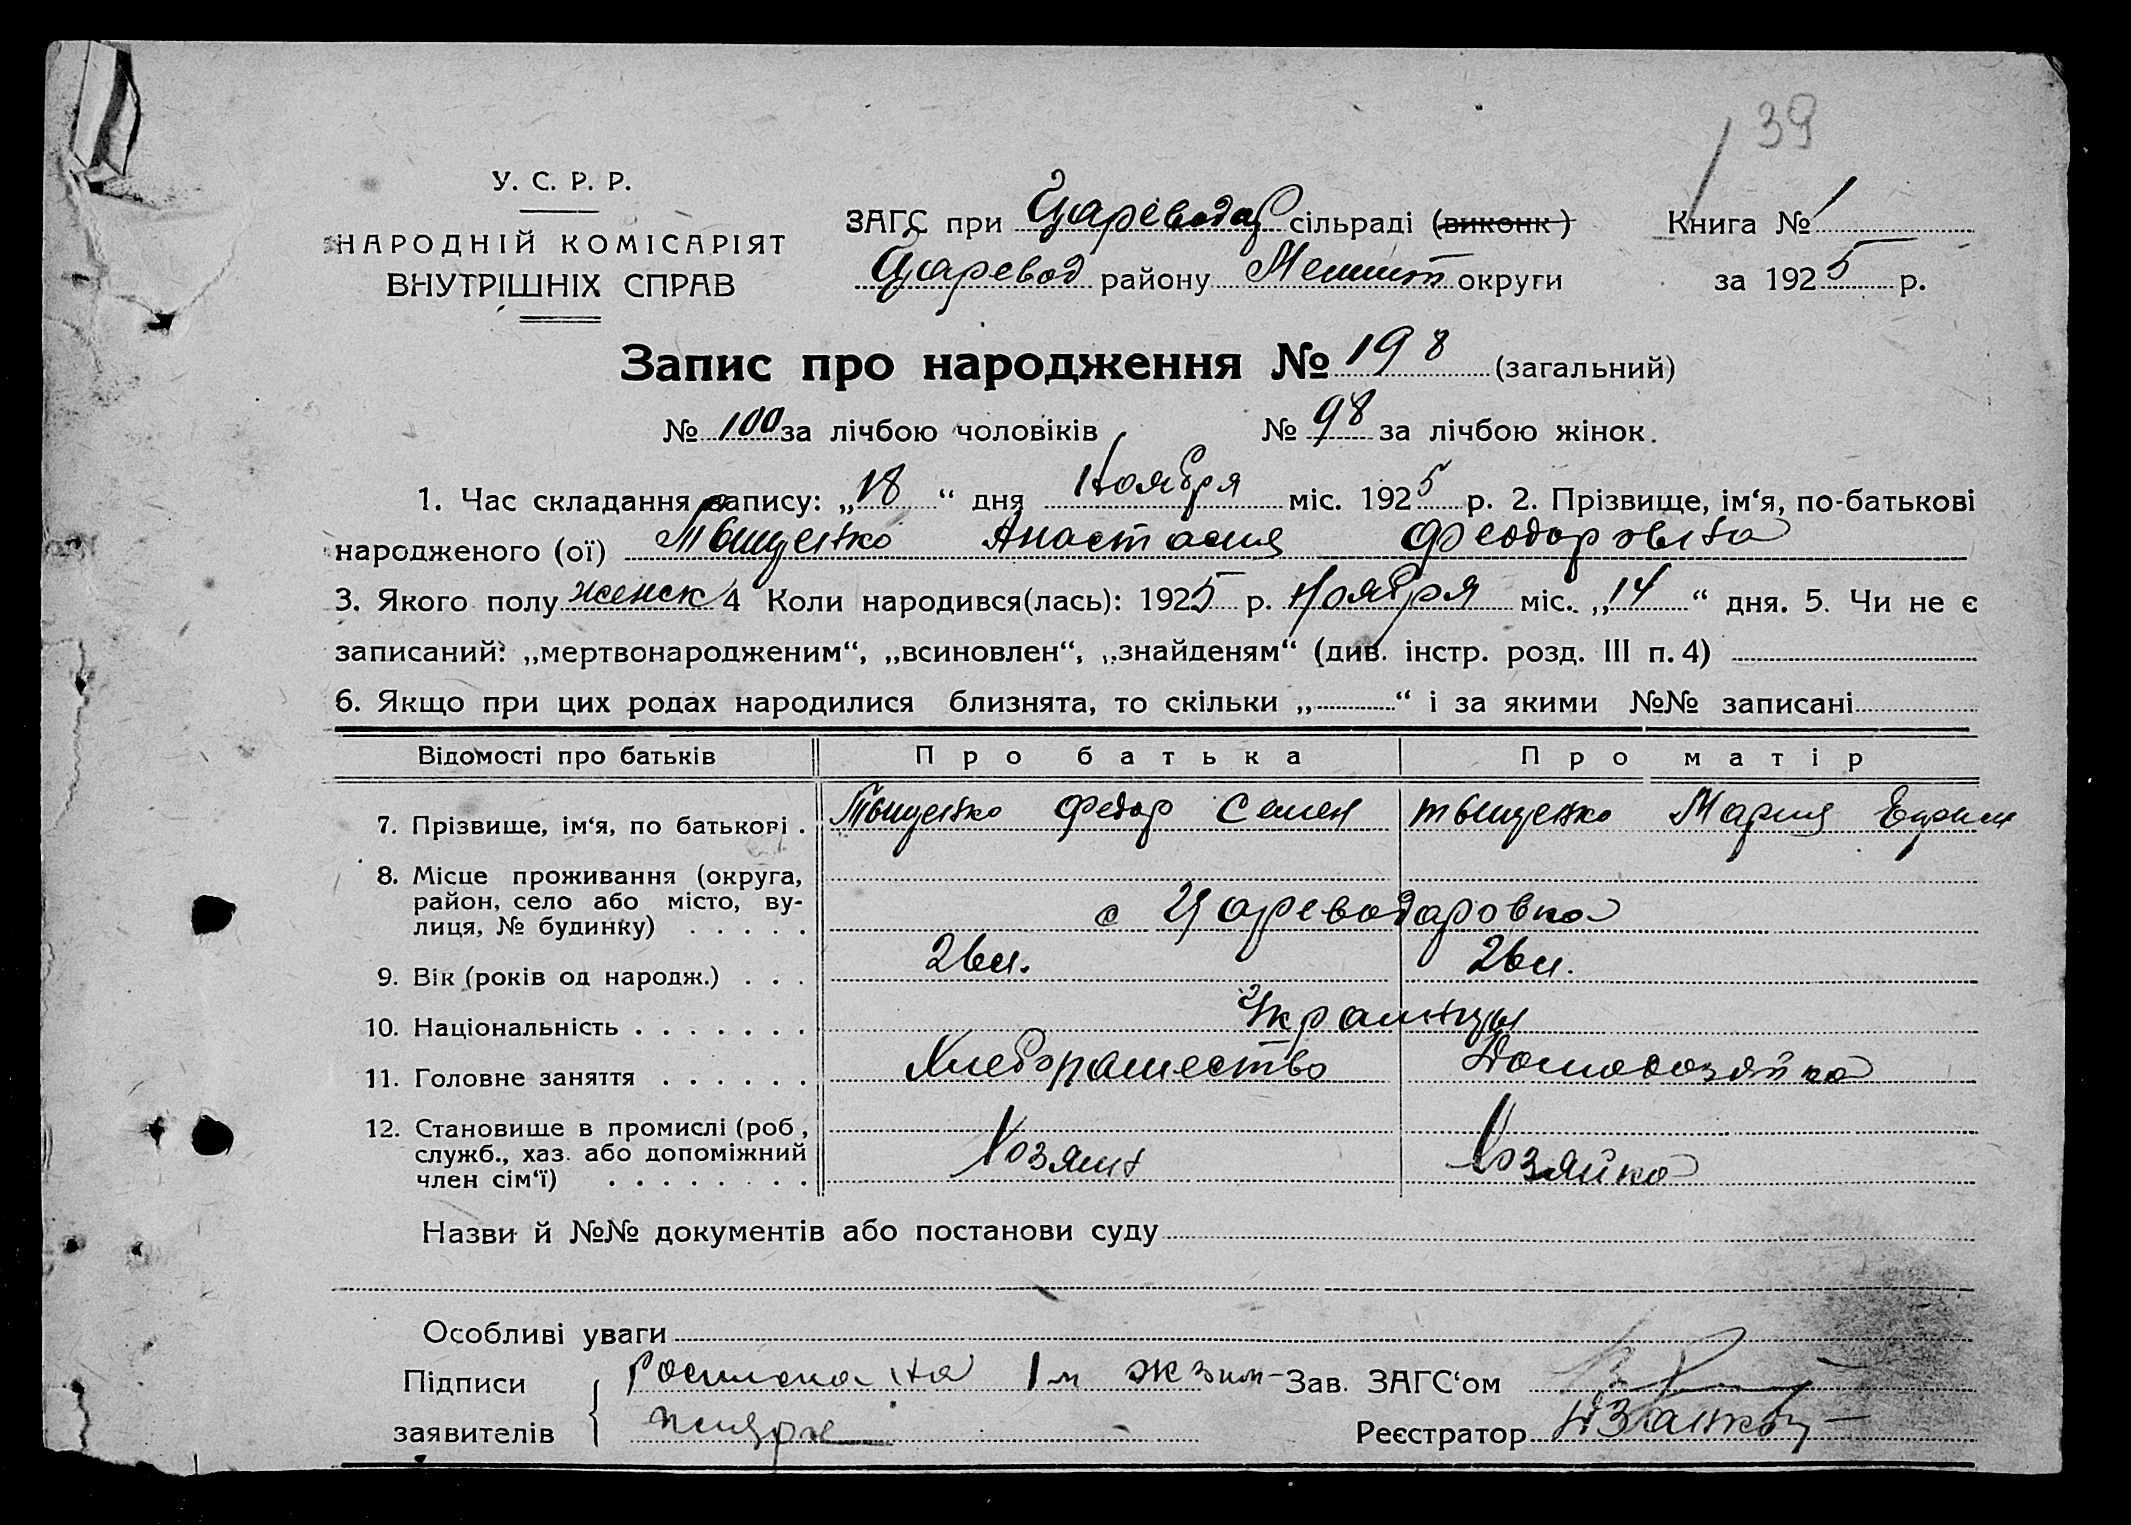 39
У. С. Р. Р.
НАРОДНІЙ КОМІСАРІЯТ
ВНУТРІШНІХ СПРАВ
ЗАГС при Царевода сільраді (виконк)
Царевод району Мелит округи
Книга № 1
за 1925 р.
Запис про народження № 198 (загальний)
№ 100 за лічбою чоловіків № 98 за лічбою жінок.
1. Час складання запису: „18“ дня Ноября міс. 1925 р. 2. Прізвище, ім‘я, по-батькові
народженого (ої) Тыщенко Анастасия Феодоровна
3. Якого полу женск 4 Коли народився(лась): 1925 р. Ноября міс. „14“ дня. 5. Чи не є
записаний: „мертвонародженим“, „всиновлен“, „знайденям“ (див. інстр. розд. III п. 4)
6. Якщо при цих родах народилися близнята, то скільки „ “ і за якими №№ записані
Відомості про батьків Про батька Про матір
7. Прізвище, ім‘я, по батькові . Тыщенко Федор Семен Тыщенко Мария Ефим
8. Місце проживання (округа,
район, село або місто, ву-
лиця, № будинку) . . . . . с Цареводаровка
9. Вік (років од народж.) . . . 26л. 26л.
10. Національність . . . . . . . Украинцы
11. Головне заняття . . . . . . Хлебопашество Домохозяйка
12. Становище в промислі (роб.,
служб., хаз. або допоміжний
член сім‘ї) . . . . . . . . Хозяин Хозяйка
Назви й №№ документів або постанови суду
Особливі уваги
Підписи Росписка на 1м экзем- Зав. ЗАГС‘ом
заявителів пляре Реєстратор